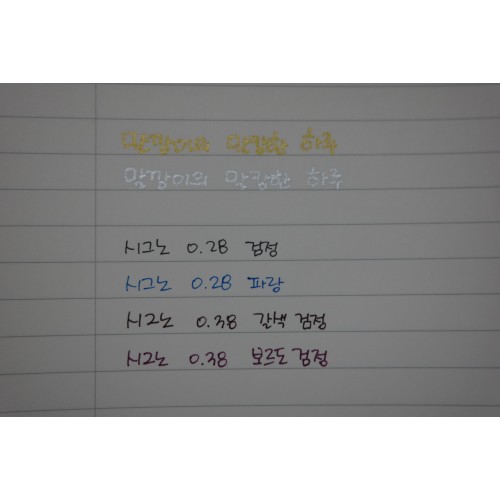 맘깡이의 말랑한 하루
맘깡이의 말랑한 하루
시그노 0.28 검정
시그노 0.28 파랑
시그노 0.38 갈색 검정
시그노 0.38 보르도 검정